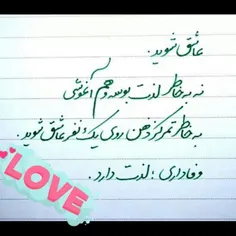 عاشق شوید.
نه به خاطر لذت بوسه و هم آغوشی
به خاطر تمرکز ذهن روی یک نفر عاشق شوید.
وفاداری: لذت دارد.
LOVE